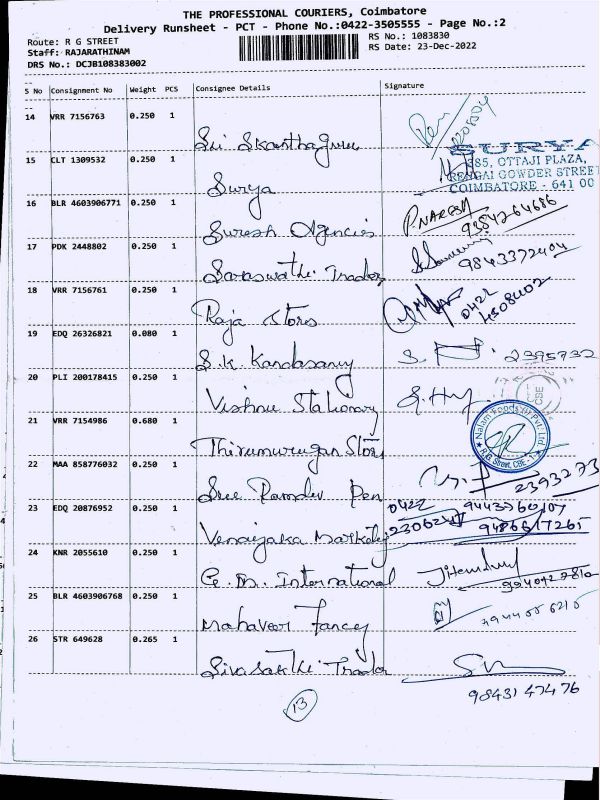 THE PROFESSIONAL COURIERS, Coimbatore
Delivery Runsheet - PCT - Phone No.:0422-3505555 - Page No.:2
Route: R G STREET
RS No.: 1083830
Staff: RAJARATHINAM
RS Date: 23-Dec-2022
DRS No.: DCJB108383002
S No Consignment No Weight PCS Consignee Details Signature
14 VRR 7156763 0.250 1
Sri Skanthaguru
15 CLT 1309532 0.250 1
SURYA
585, OTTAJI PLAZA,
RENGAI GOWDER STREET
COIMBATORE - 641 00
Surya
16 BLR 4603906771 0.250 1
P. NARESH
93842-64686
Suresh Agencies
17 PDK 2448802 0.250 1
9843372404
Saraswathi Trador
18 VRR 7156761 0.250 1
0422
4508402
Raja Stores
19 EDQ 26326821 0.080 1
2395732
S.K. Kandasamy
20 PLI 200178415 0.250 1
CBE
Vishnu Stationary
21 VRR 7154986 0.680 1
Nalam Foods (I) Pvt. Ltd.
R.G. Street, CBE - 1
Thirumurugan Stors
22 MAA 858776032 0.250 1
2393273
Sree Ramdev Pen
23 EDQ 20876952 0.250 1
0422
9443360107
9486617265
Venaijaka Marketing
24 KNR 2055610 0.250 1
G.M. International
25 BLR 4603906768 0.250 1
Mahaveer Fancy
26 STR 649628 0.265 1
Sivasakthi Trador
98431 47476
13